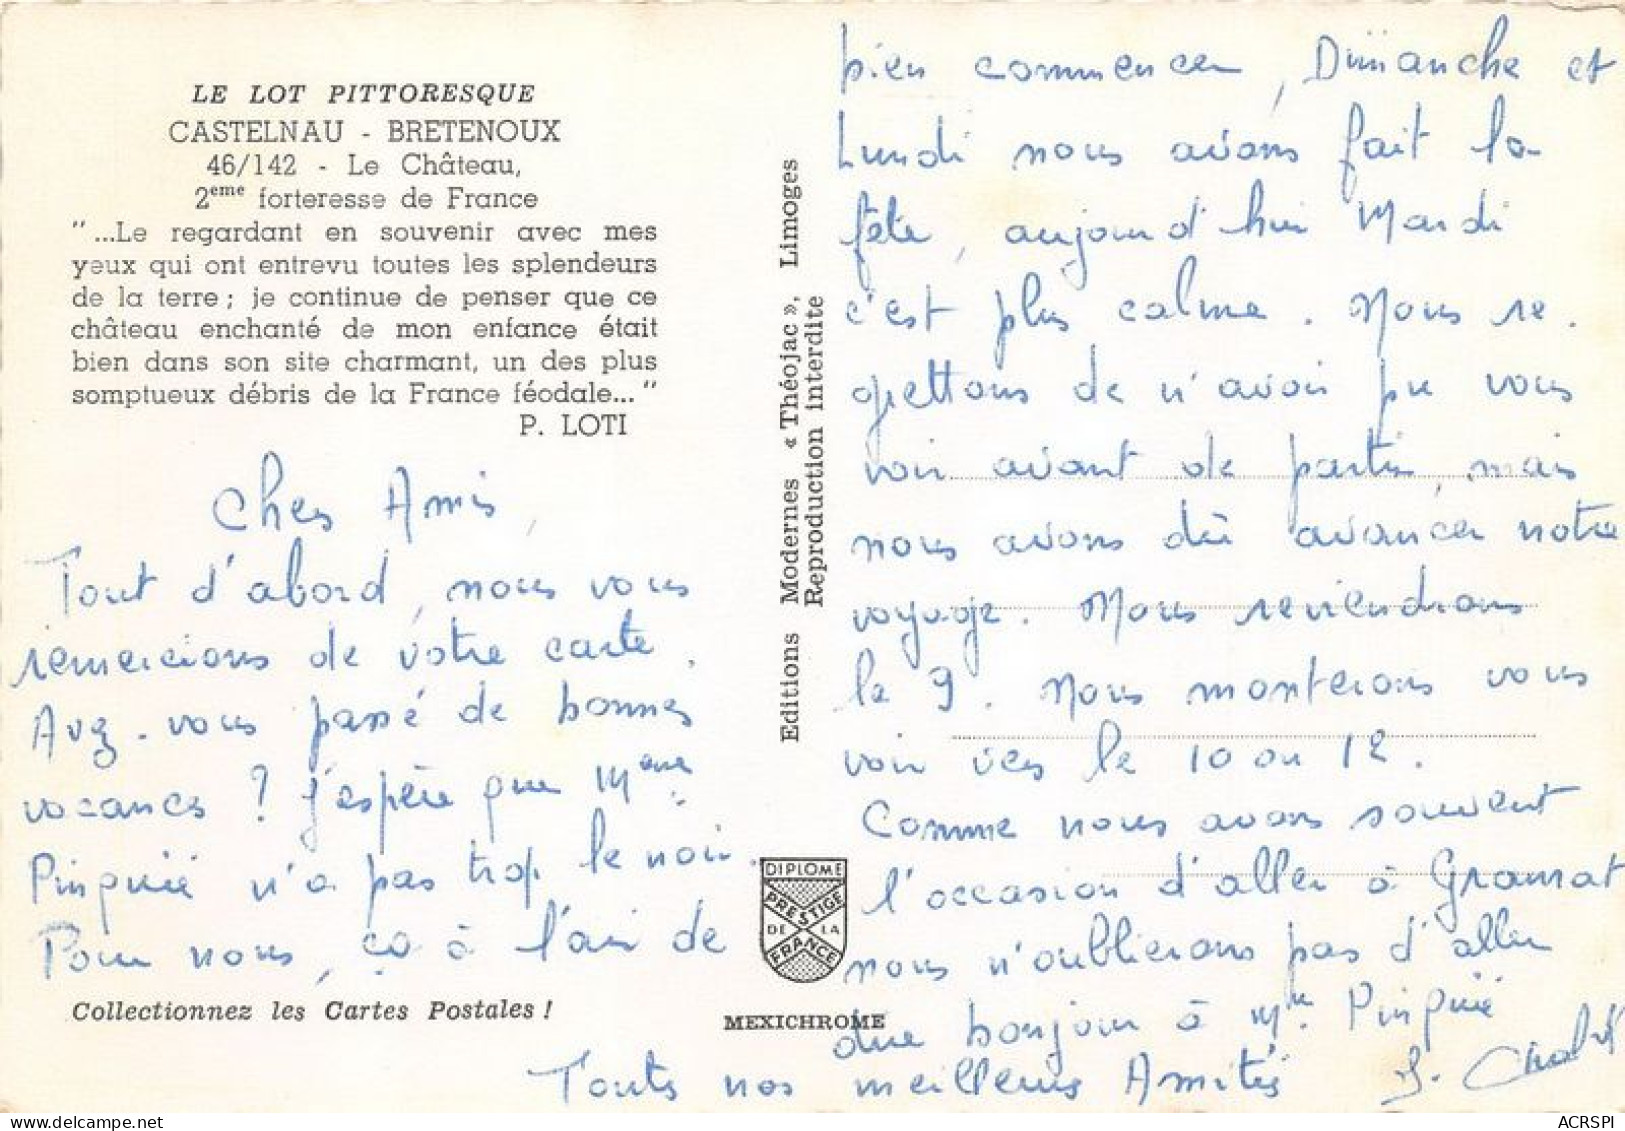 LE LOT PITTORESQUE
CASTELNAU - BRETENOUX
46/142 - Le Château,
2eme forteresse de France
"...Le regardant en souvenir avec mes
yeux qui ont entrevu toutes les splendeurs
de la terre ; je continue de penser que ce
château enchanté de mon enfance était
bien dans son site charmant, un des plus
somptueux débris de la France féodale..."
P. LOTI
Chers Amis,
Tout d'abord, nous vous
remercions de votre carte.
Avez-vous passé de bonnes
vacances ? J'espère que Mme
Pinquié n'a pas trop le noir.
Pour nous, ça a l'air de
Collectionnez les Cartes Postales !
Editions Modernes « Théojac », Limoges
Reproduction interdite
DIPLOME
PRESTIGE
DE LA
FRANCE
MEXICHROME
bien commencer, Dimanche et
Lundi nous avons fait la
fête, aujourd'hui Mardi
c'est plus calme. Nous re.
grettons de n'avoir pu vous
voir avant de partir, mais
nous avons dû avancer notre
voyage. Nous reviendrons
le 9. Nous monterons vous
voir vers le 10 ou 12.
Comme nous avons souvent
l'occasion d'aller à Gramat
nous n'oublierons pas d'aller
dire bonjour à Mr Pinquié
Toutes nos meilleures Amitiés
ACRSPI